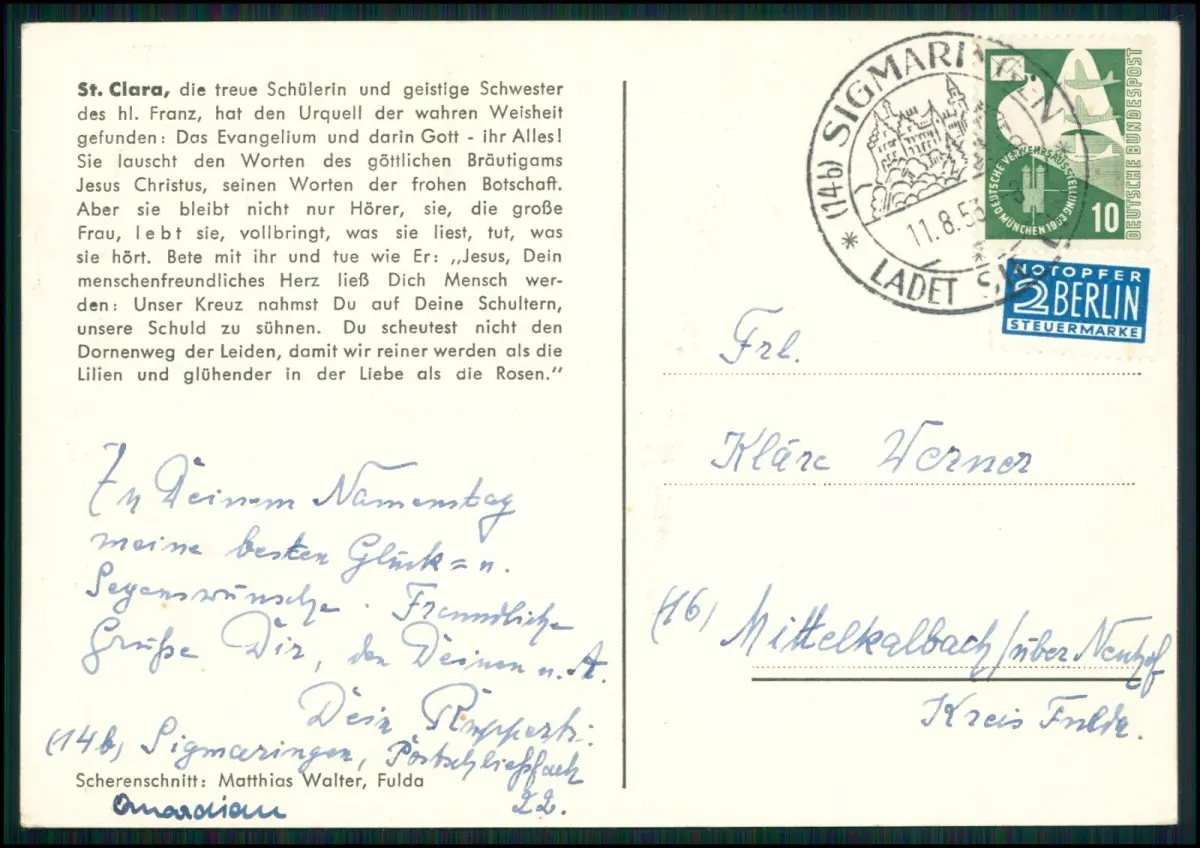 St. Clara, die treue Schülerin und geistige Schwester
des hl. Franz, hat den Urquell der wahren Weisheit
gefunden: Das Evangelium und darin Gott - ihr Alles!
Sie lauscht den Worten des göttlichen Bräutigams
Jesus Christus, seinen Worten der frohen Botschaft.
Aber sie bleibt nicht nur Hörer, sie, die große
Frau, lebt sie, vollbringt, was sie liest, tut, was
sie hört. Bete mit ihr und tue wie Er: „Jesus, Dein
menschenfreundliches Herz ließ Dich Mensch wer-
den: Unser Kreuz nahmst Du auf Deine Schultern,
unsere Schuld zu sühnen. Du scheutest nicht den
Dornenweg der Leiden, damit wir reiner werden als die
Lilien und glühender in der Liebe als die Rosen."
Zu Deinem Namenstag
meine besten Glück= u.
Segenswünsche. Freundliche
Grüße Dir, den Deinen u. A.
Dein
(14b) Sigmaringen, Postschließfach
22.
Scherenschnitt: Matthias Walter, Fulda
(14b) SIGMARINGEN
11.8.53
LADET SIE
DEUTSCHE BUNDESPOST
DEUTSCHE VERKEHRSAUSSTELLUNG
MÜNCHEN 1953
10
NOTOPFER
2 BERLIN
STEUERMARKE
Frl.
Kläre Werner
(16) Mittelkalbach/über Neuhof
Kreis Fulda.